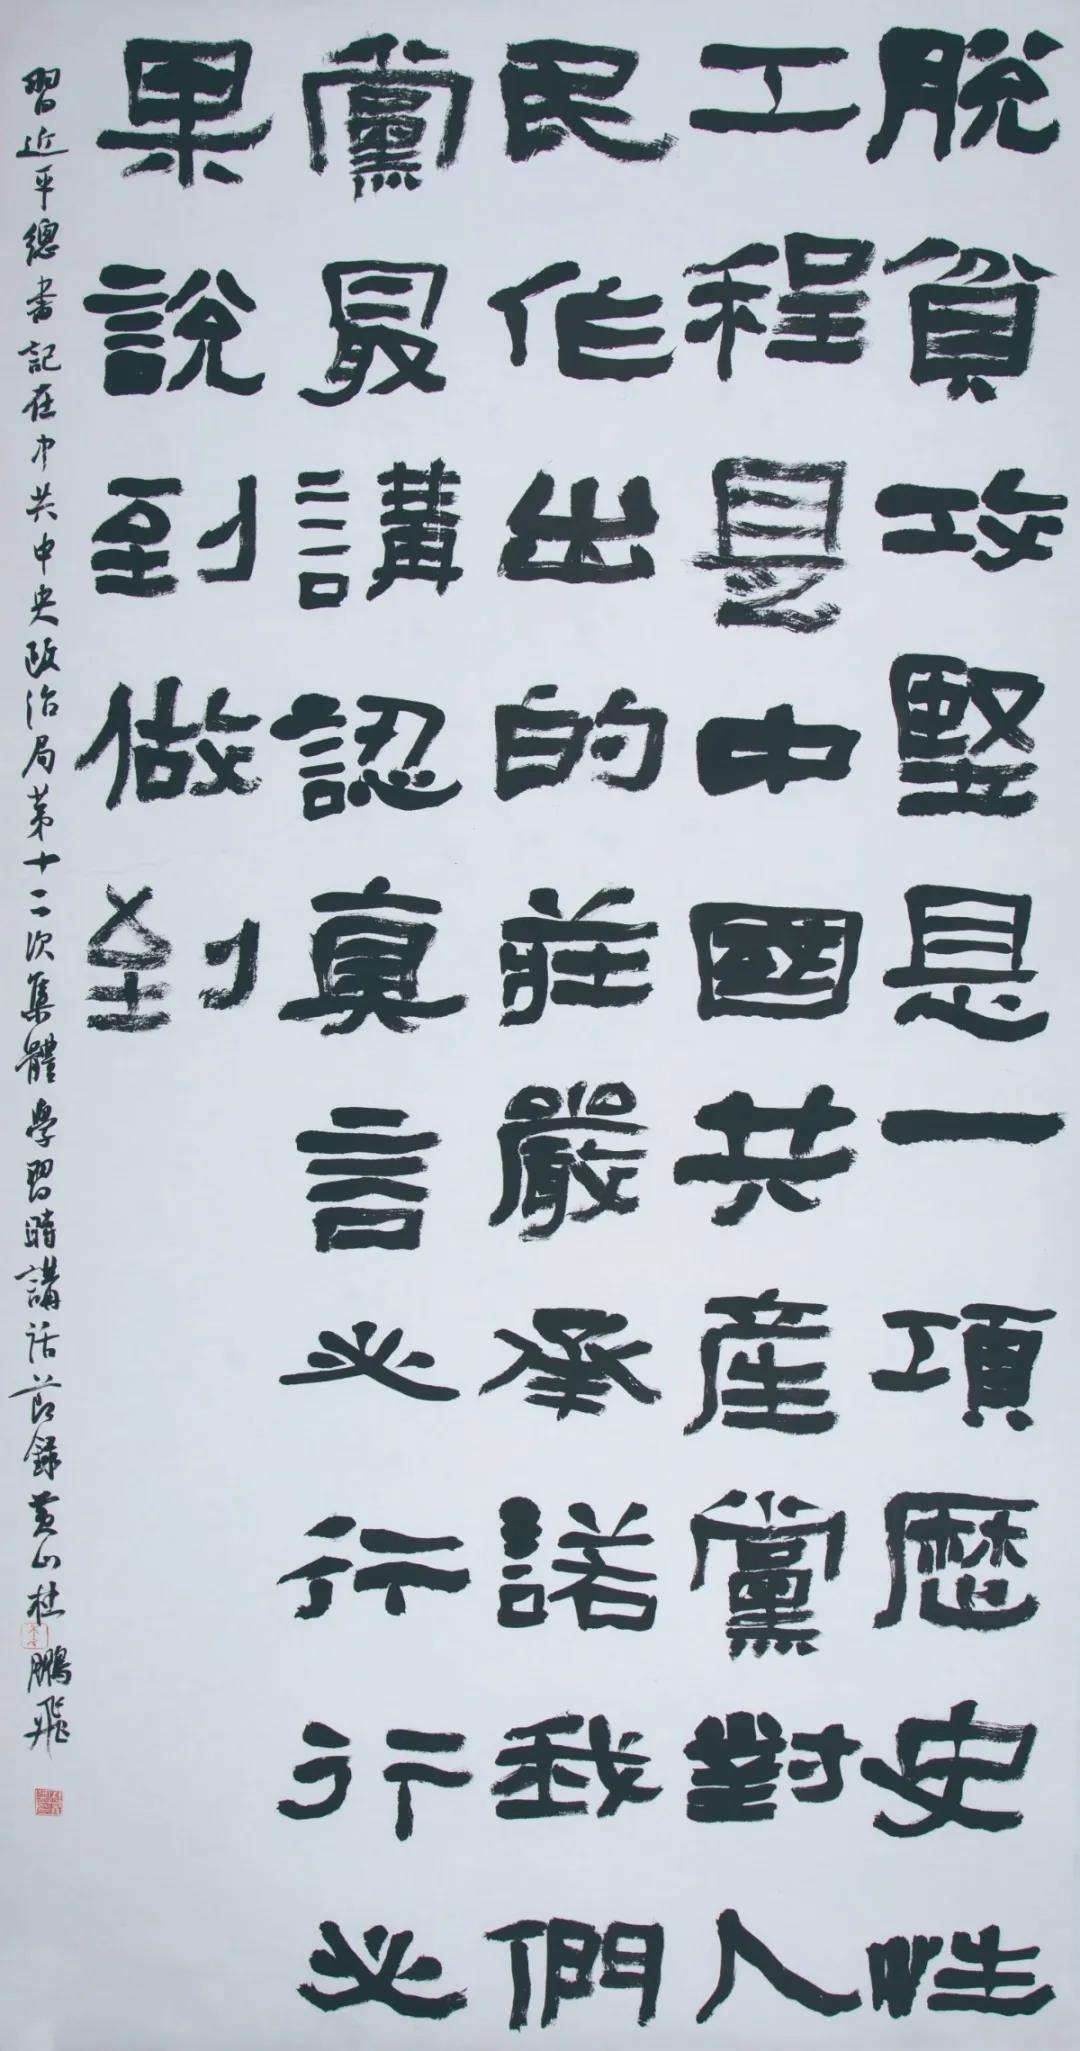 脫貧攻堅是一項歷史性
工程是中國共產黨對人
民作出的莊嚴承諾我們
黨最講認真言必行行必
果說到做到
習近平總書記在中共中央政治局第十二次集體學習時講話節錄黄山杜鵬飛